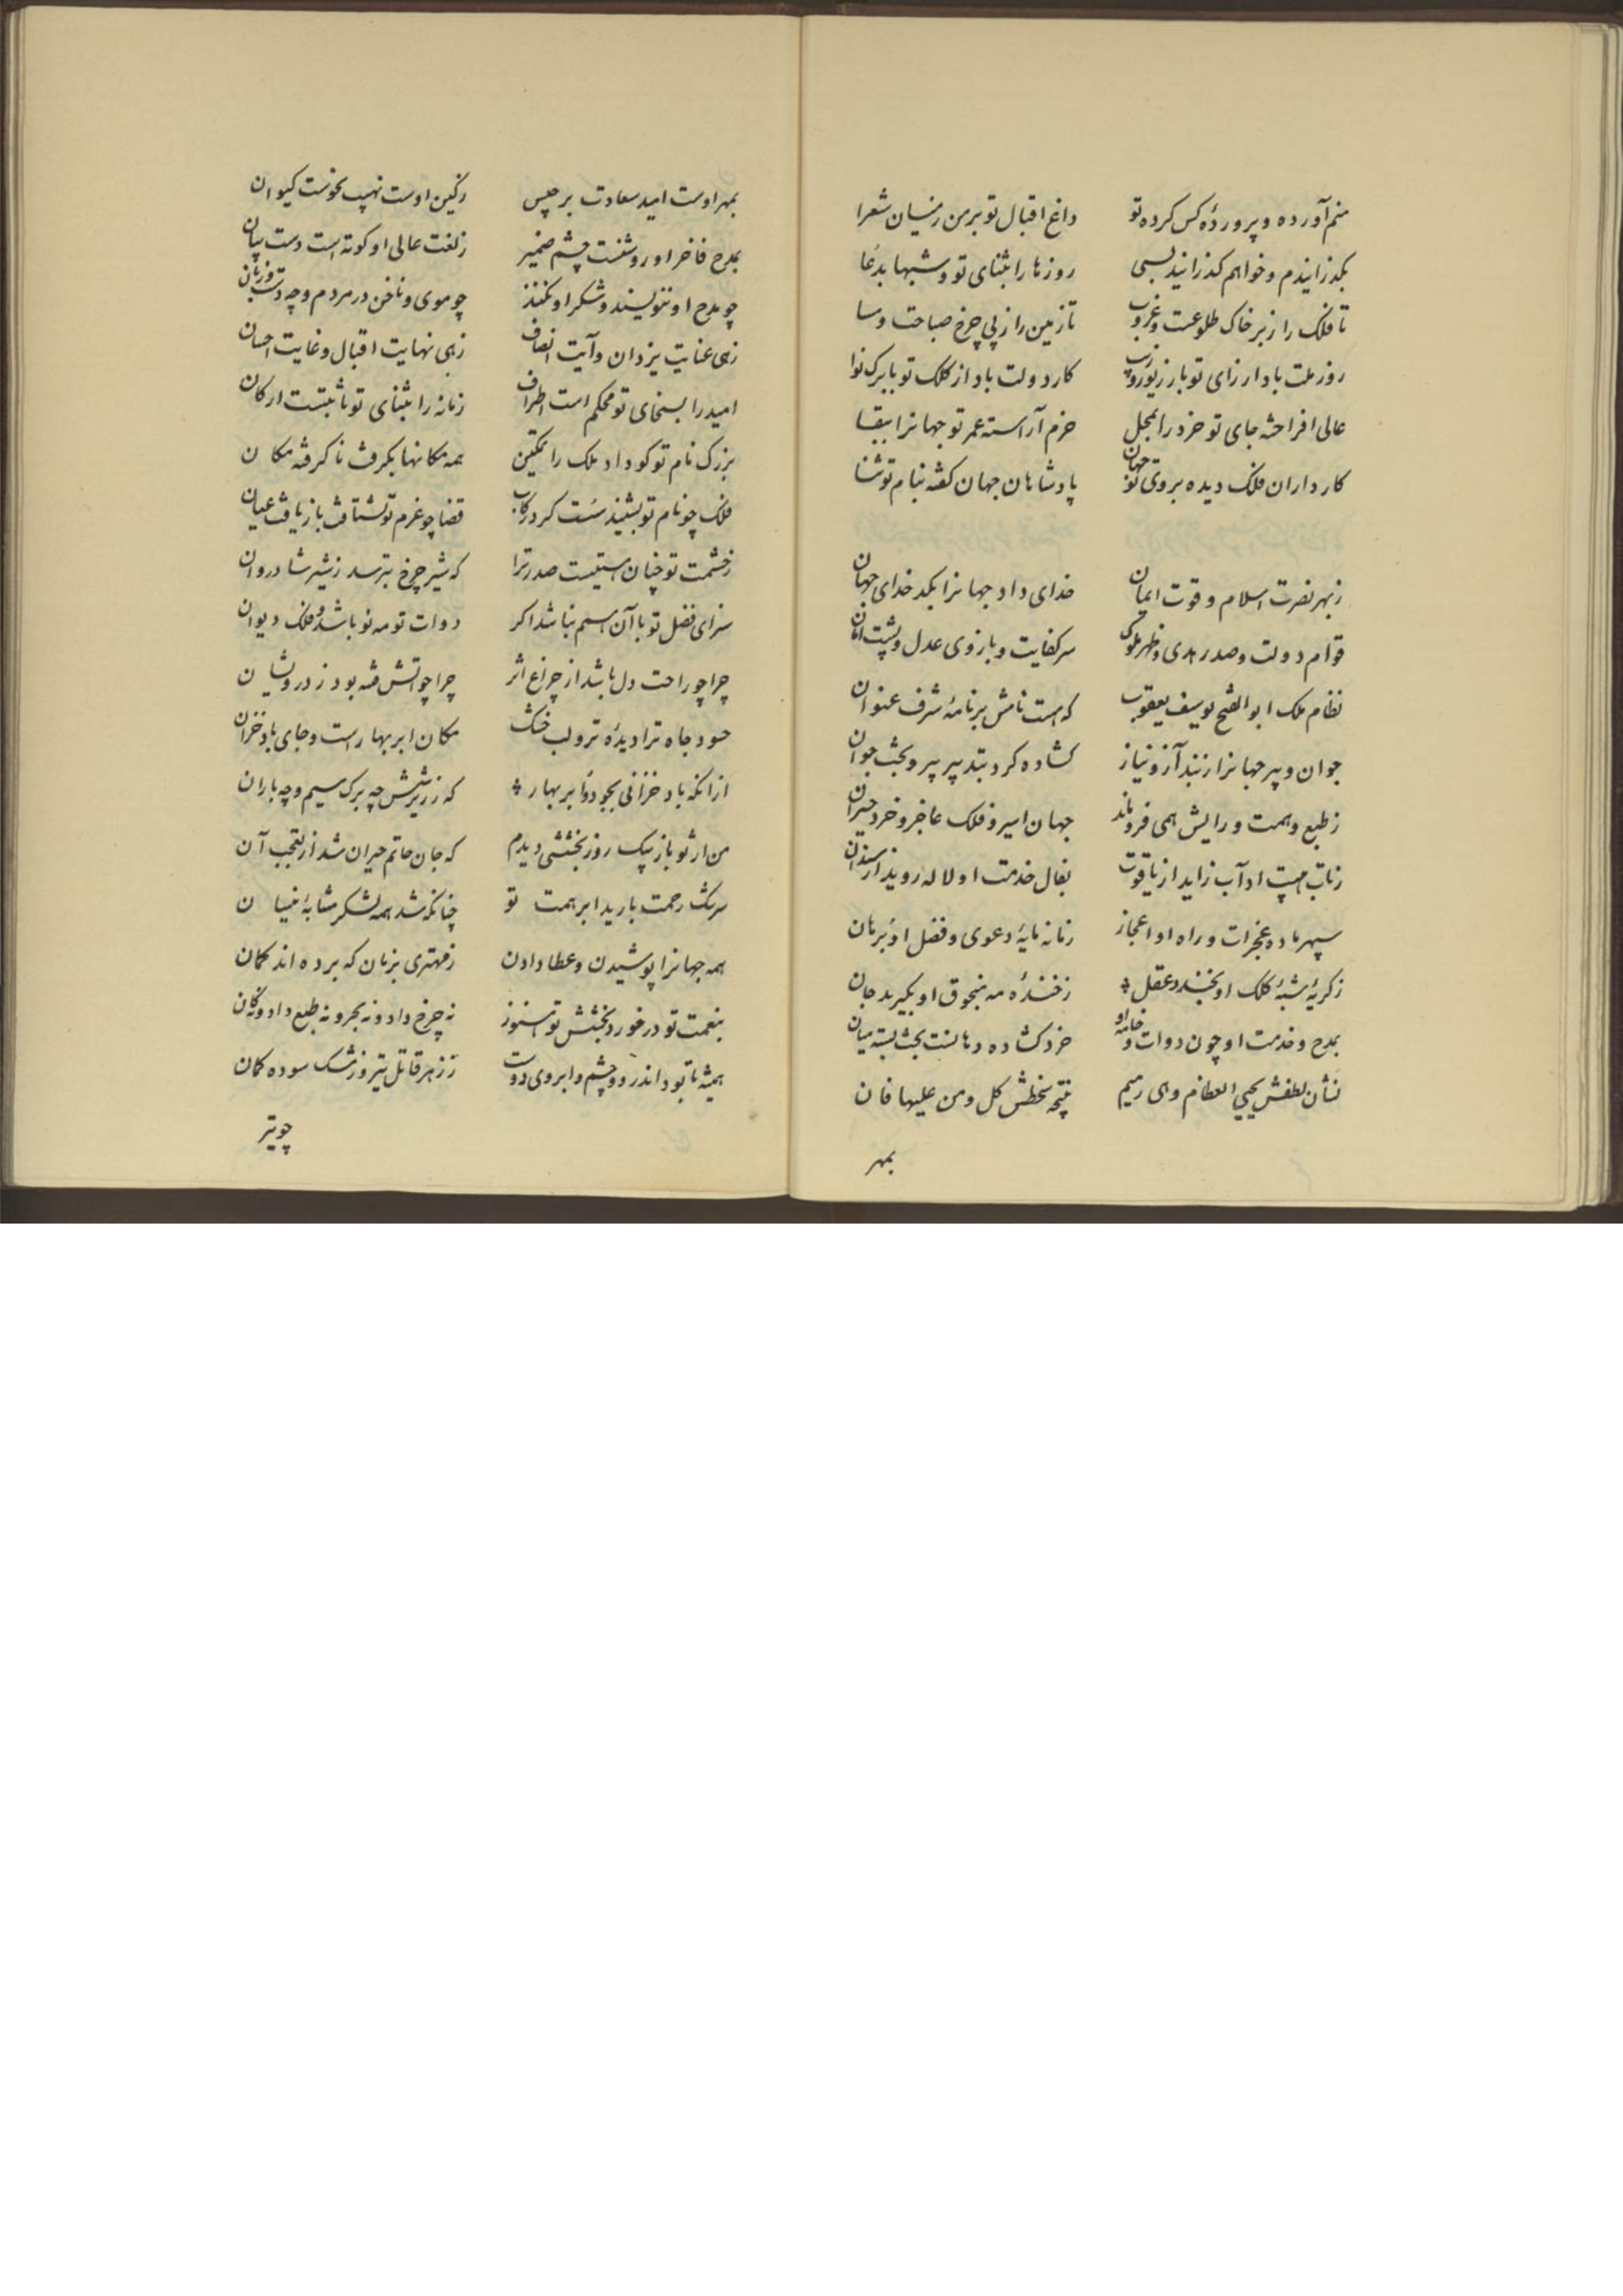 منم آورده و پرورده کس کرده تو داغ اقبال تو بر من ز میان شعرا
بگذرانیدم و خواهم گذرانید بسی روزها را بثنای تو و شبها بدعا
تا فلک را زبر خاک طلوعست و غروب تا زمین را ز پی چرخ صباحت و مسا
روز ملت باد از رای تو با زیور و زیب کار دولت باد از کلک تو با برگ و نوا
عالی افراخته جای تو خرد را بمحل خرم آراسته عمر تو جهانرا ببقا
کارداران فلک دیده بروی تو جهان پادشاهان جهان گفته بنام تو ثنا
ز بهر نصرت اسلام و قوت ایمان خدای داد جهانرا بکدخدای جهان
قوام دولت و صدر هدی و ظهر ملوک سر کفایت و بازوی عدل و پشت امان
نظام ملک ابوالفتح یوسف یعقوب که هست نامش بر نامه شرف عنوان
جوان و پیر جهانرا ز بند آز و نیاز گشاده کرد بتدبیر پیر و بخت جوان
ز طبع و همت و رایش همی فرو ماند جهان اسیر و فلک عاجز و خرد حیران
ز تاب هیبت او آب زاید از یاقوت بفال خدمت او لاله روید از سندان
سپهر ماده معجزات و راه او اعجاز زمانه مایه دعوی و فضل او برهان
ز گریه شبه کلک او بخندد عقل ز خنده مه منجوق او بگرید جان
بمدح و خدمت او چون دوات و خامه او خرد گشاده دهانست بخت بسته میان
نشان لطفش یحیی العظام و هی رمیم نتیجه سخطش کل و من علیها فان
بمهر
بمهر اوست امید سعادت برجیس ز کین اوست نهیب نحوست کیوان
بمدح فاخر او روشنست چشم ضمیر ز نعت عالی او کوته است دست بیان
چو مدح او ننویسند و شکر او نکنند چو موی و ناخن در مردم و چه دست و زبان
زهی عنایت یزدان و آیت انصاف زهی نهایت اقبال و غایت احسان
امید را بسخای تو محکم است اطراف زمانه را بثنای تو ثابتست ارکان
بزرگ نام تو کو داد ملک را تمکین همه مکانها بگرفت ناگرفته مکان
فلک چو نام تو بشنید سست کرد رکاب قضا چو عزم تو بشتافت باز یافت عنان
ز حشمت تو چنان هیبتیست صدر ترا که شیر چرخ بترسد ز شیر شادروان
سزای فضل تو با آن هم نباشد اگر دوات تو مه نو باشد و فلک دیوان
چرا چو راحت دل باشد از چراغ اثر چرا چو آتش فتنه بود ز درویشان
حسود جاه ترا دیده تر و لب خشک مکان ابر بهار است و جای باد خزان
ازانکه باد خزانی بجود و ابر بهار که زر پرستش چه برگ سیم و چه باران
من از تو باز بیک روز بخششی دیدم که جان حاتم حیران شد از تعجب آن
سرشک رحمت بارید ابر همت تو چنانکه شد همه لشکر مشابه نیسان
همه جهانرا پوشیدن و عطا دادن ز مهتری بزمان که برده اند گمان
بنعمت تو درخورد بخشش تو هنوز نه چرخ داد و نه بحر و نه طبع داد و نه کان
همیشه تا بود اندر دو چشم و ابروی دوست ز زهر قاتل تیر و ز مشک سوده کمان
چو تیر